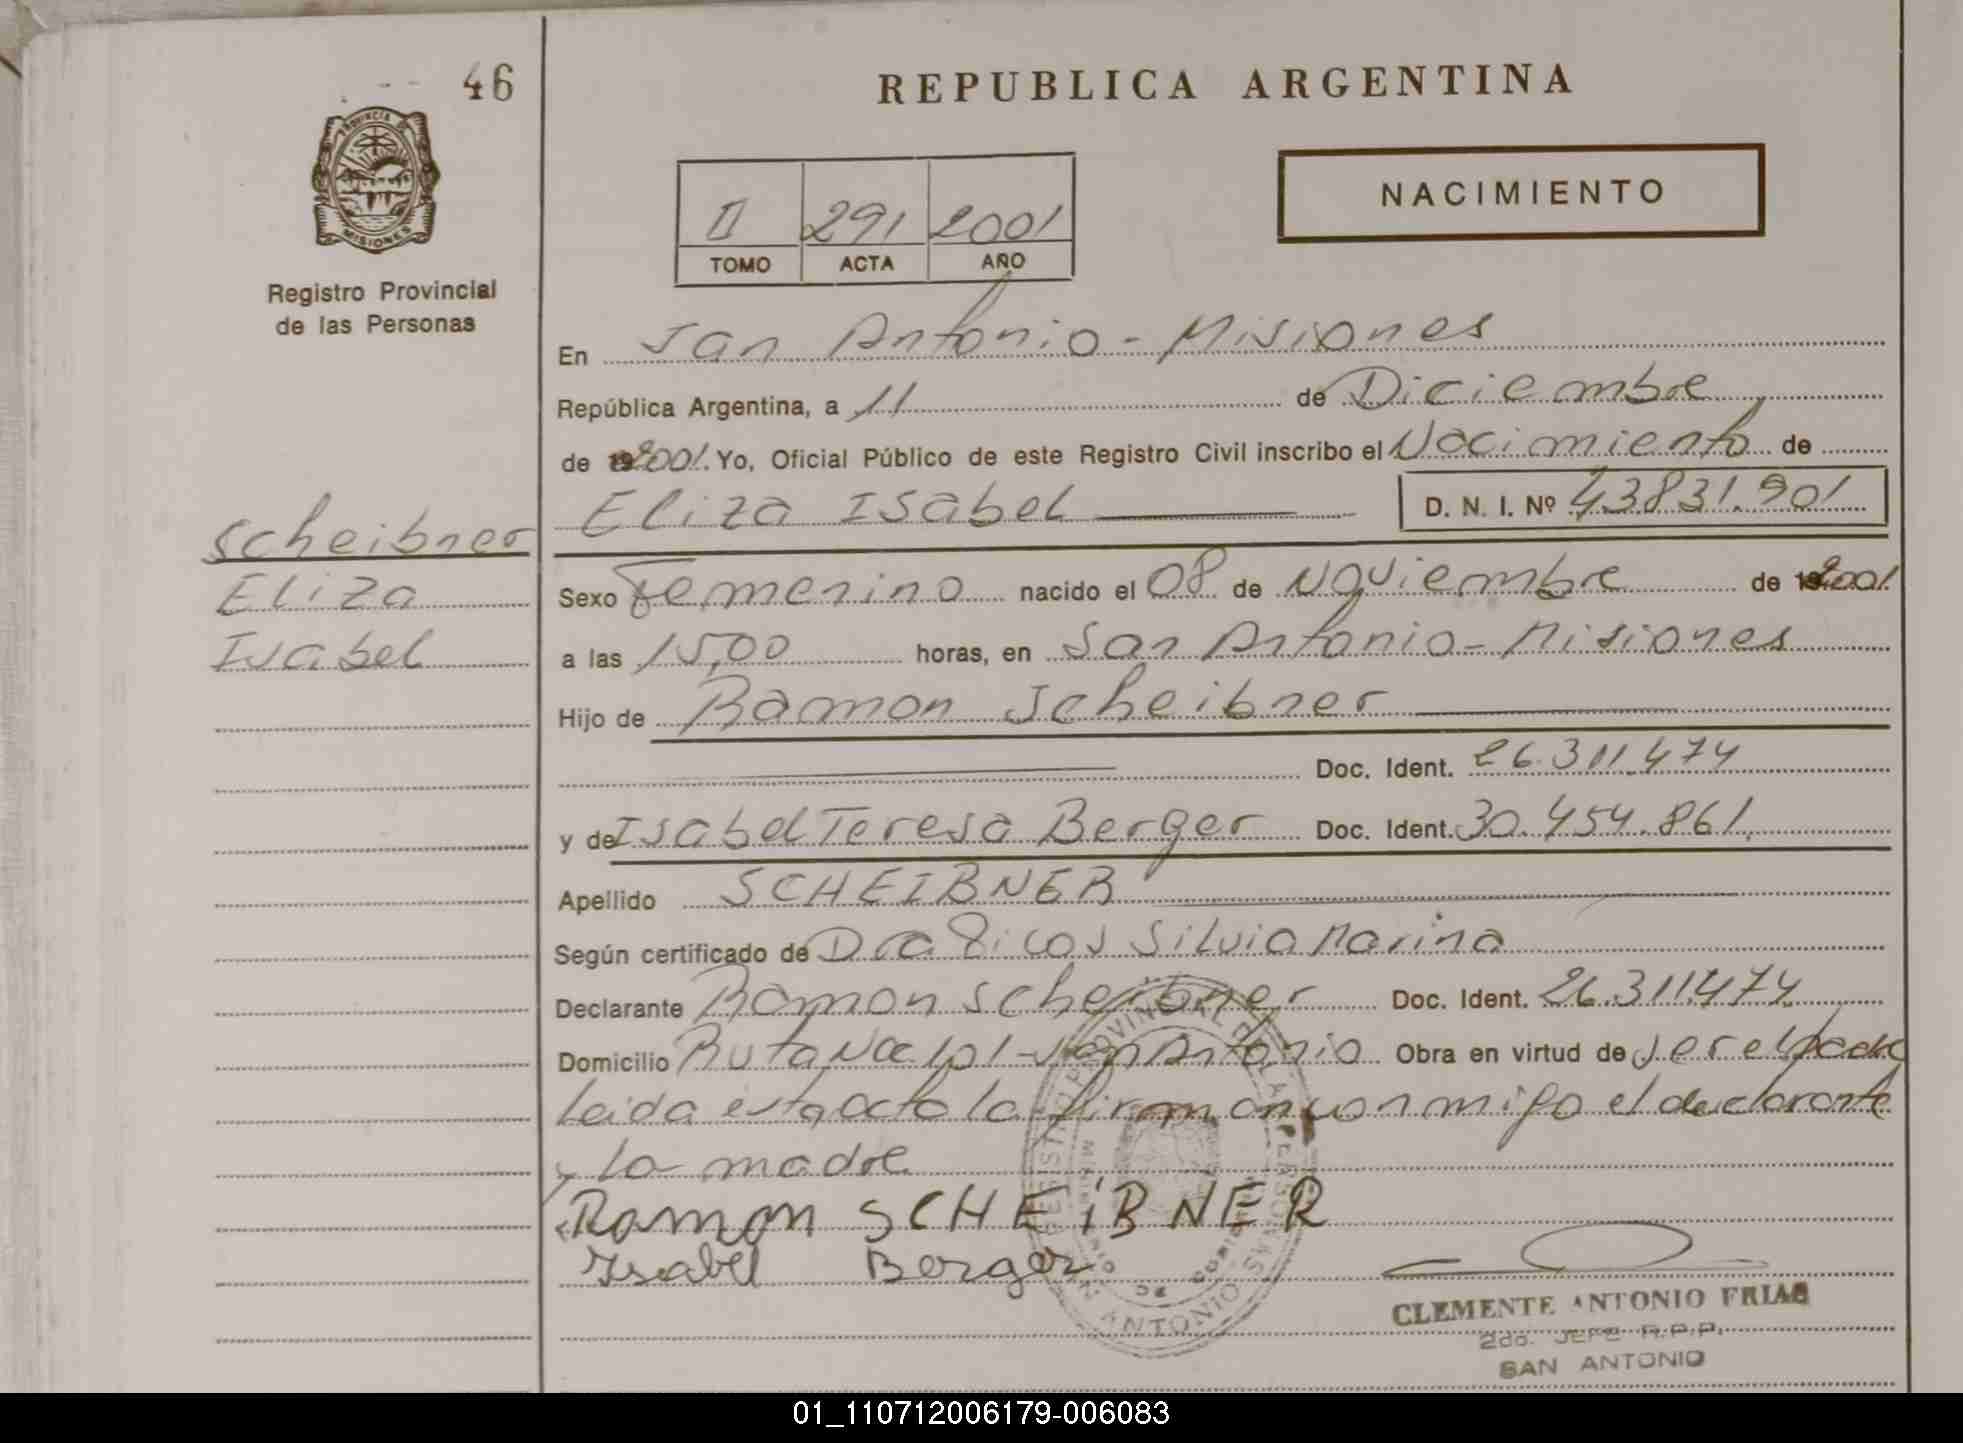 46
REPUBLICA ARGENTINA
PROVINCIA DE MISIONES
Registro Provincial
de las Personas
NACIMIENTO
II 291 2001
TOMO ACTA AÑO
En San Antonio - Misiones
República Argentina, a 11 de Diciembre
de 2001. Yo, Oficial Público de este Registro Civil inscribo el Nacimiento de
Eliza Isabel D. N. I. Nº 43831.901
Scheibner
Eliza
Isabel
Sexo Femenino nacido el 08 de Noviembre de 2001
a las 15,00 horas, en San Antonio - Misiones
Hijo de Ramon Scheibner
Doc. Ident. 26.311.474
y de Isabel Teresa Berger Doc. Ident. 30.454.861
Apellido SCHEIBNER
Según certificado de Dra Silvia Marina
Declarante Ramon Scheibner Doc. Ident. 26.311.474
Domicilio Ruta 101 - San Antonio Obra en virtud de ser el padre
leida esta acta la firman conmigo el declarante
y la madre
Ramon SCHEiBNER
Isabel Berger
CLEMENTE ANTONIO FRIAS
2do. JEFE R.P.P.
SAN ANTONIO
01_110712006179-006083